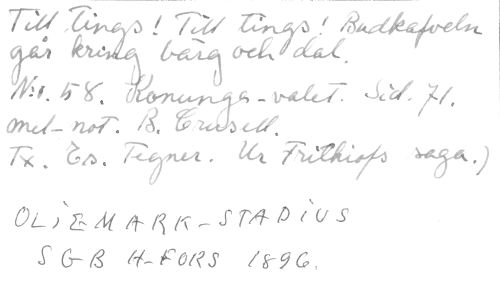 Till tings! Till tings! Budkafveln
går kring bärg och dal.
N:o. 58. Konunga-valet. Sid. 71.
mel-not. B. Crusell.
Tx. Es. Tegner. Ur Frithiofs saga.)
OLIEMARK-STADIUS
SGB H-FORS 1896.